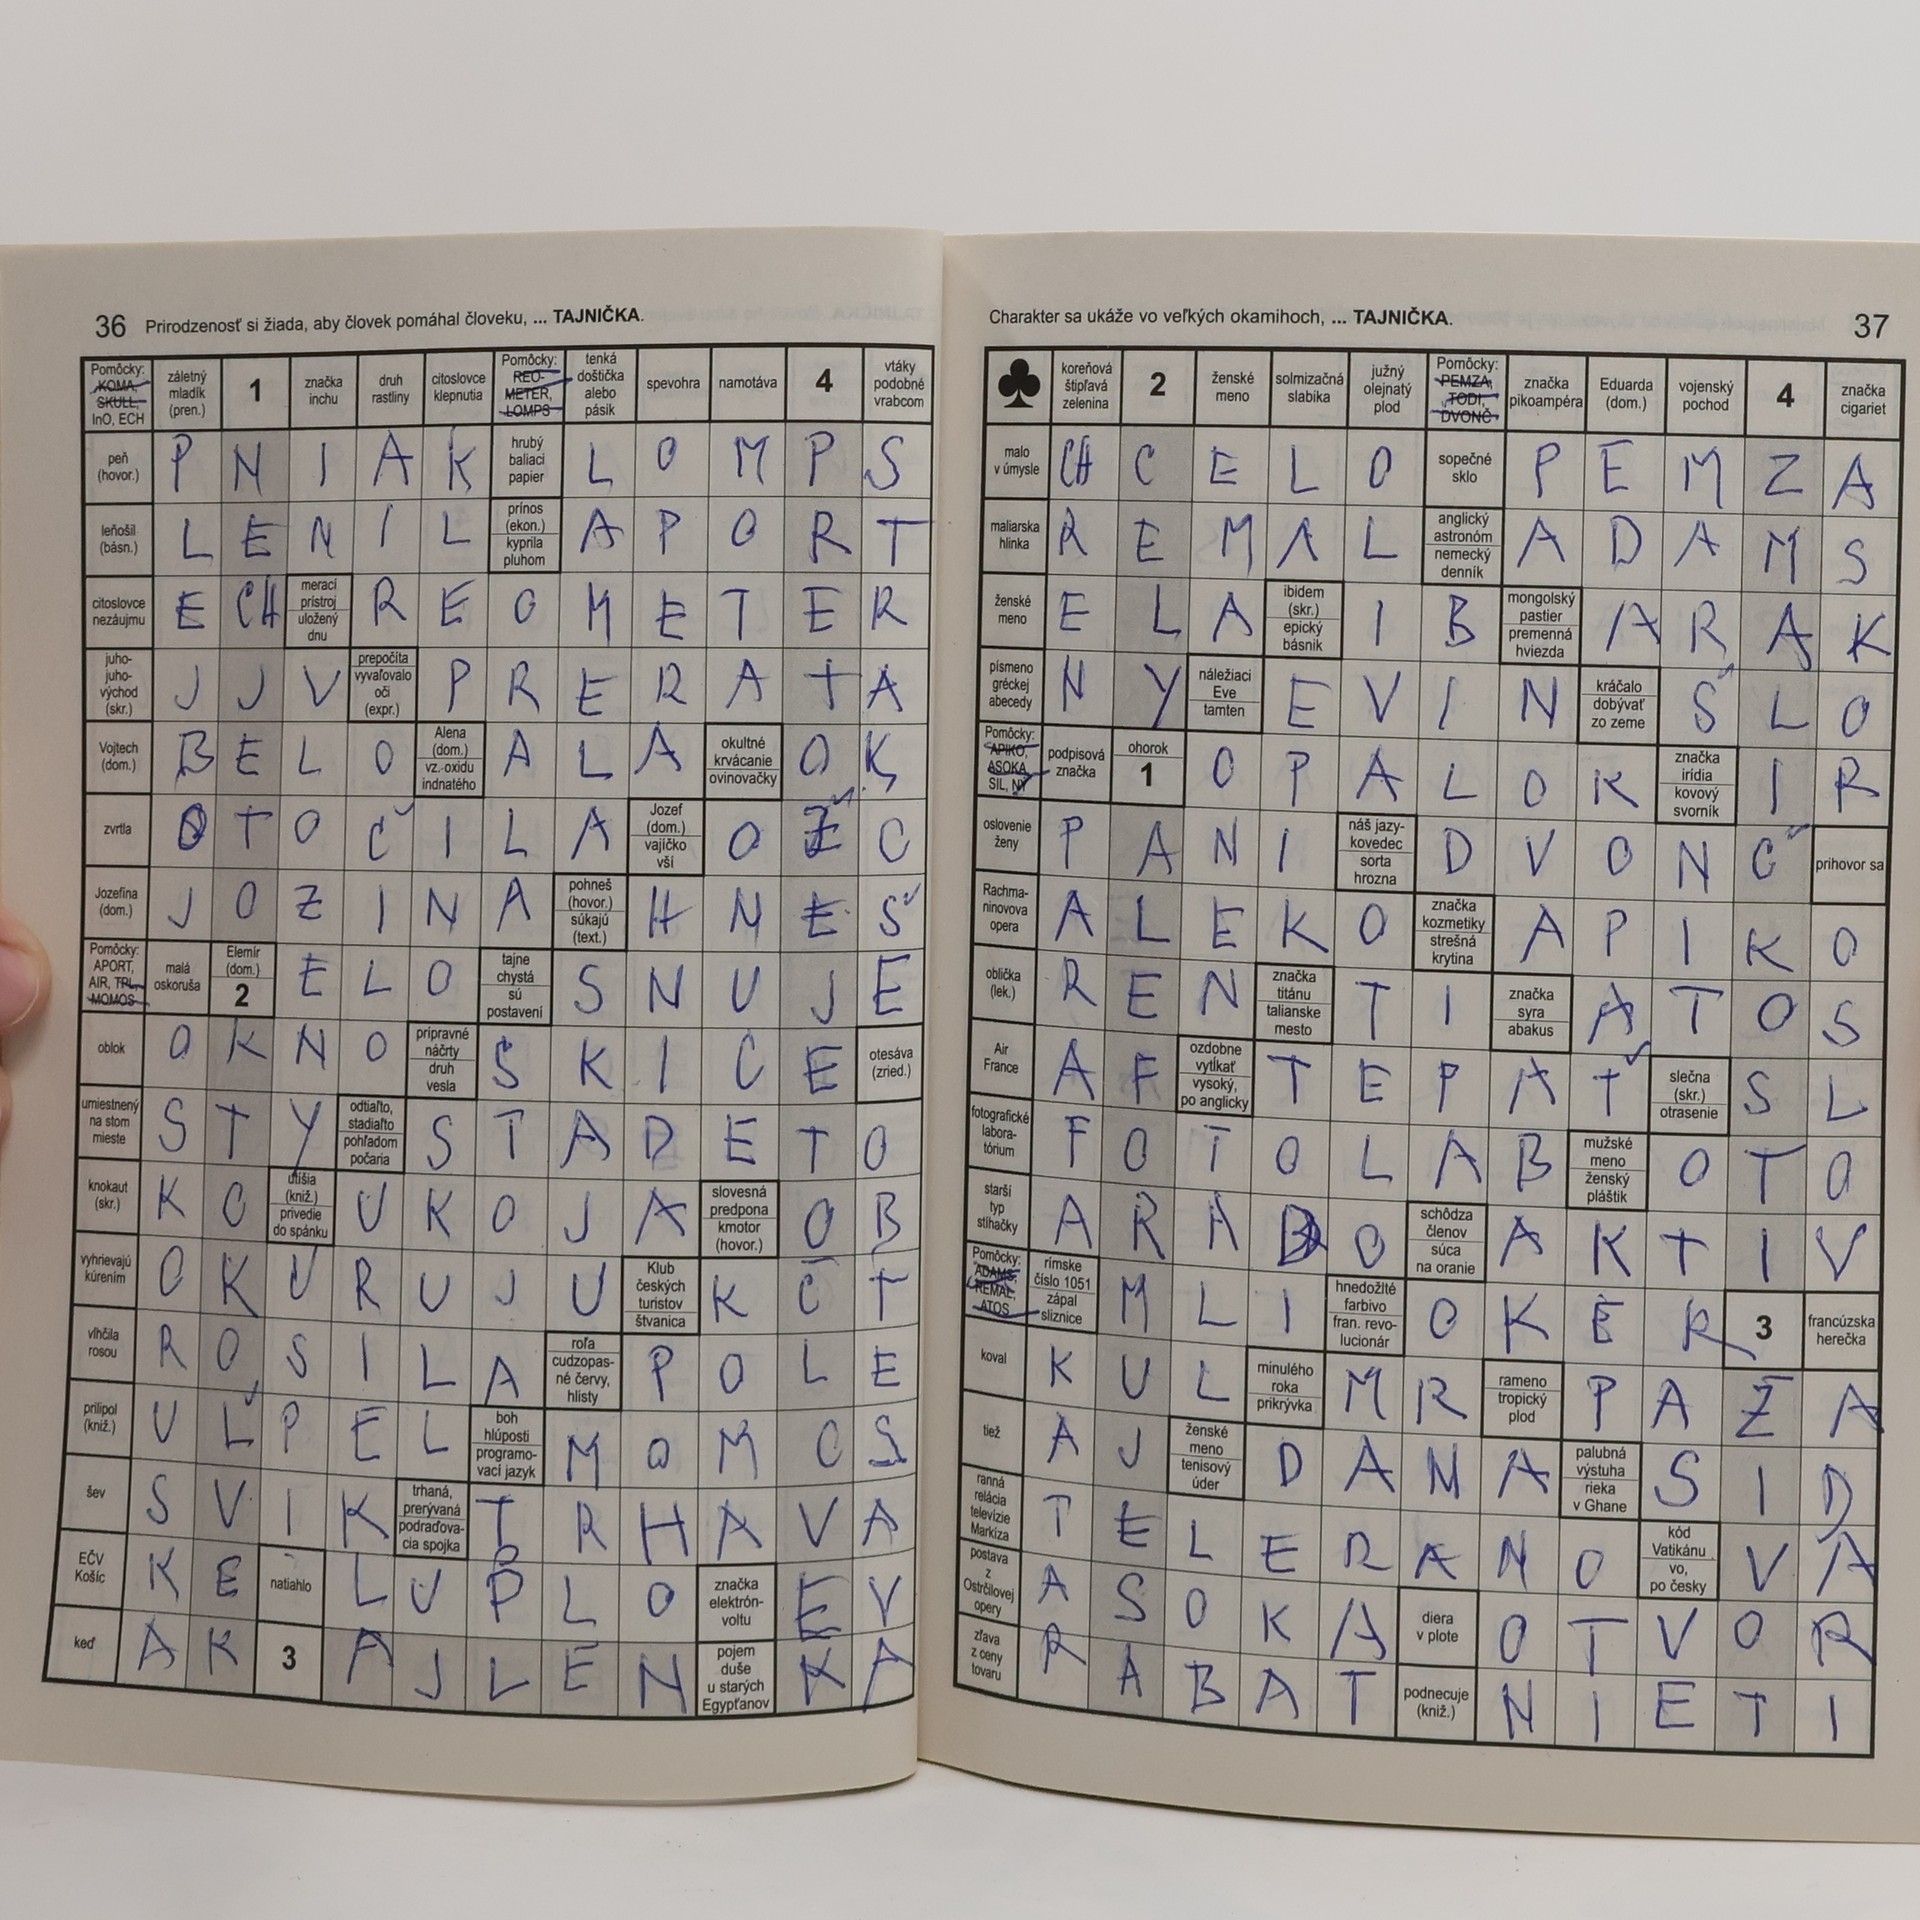 36 Prirodzenosť si žiada, aby človek pomáhal človeku, ... TAJNIČKA.
Pomôcky: KOMA, SKULL, InO, ECH
záletný mladík (pren.)
1
značka inchu
druh rastliny
citoslovce klepnutia
Pomôcky: REO-METER, LOMPS
tenká doštička alebo pásik
spevohra
namotáva
4
vtáky podobné vrabcom
peň (hovor.) P N I A K hrubý baliaci papier L O M P S
leňošil (básn.) L E N I L prínos (ekon.) kyprila pluhom A P O R T
citoslovce nezáujmu E CH merací prístroj uložený dnu R E O M E T E R
juho-juho-východ (skr.) J J V prepočíta vyvaľovalo oči (expr.) P R E R A T A
Vojtech (dom.) B E L O Alena (dom.) vz. oxidu indnatého A L A okultné krvácanie ovinovačky O K
zvrtla O T O Č I L A Jozef (dom.) vajíčko vší O Ž O
Jozefína (dom.) J O Z I N A pohneš (hovor.) súkajú (text.) H N E Š
Pomôcky: APORT, AIR, TPL, MOMOS malá oskoruša Elemír (dom.) 2 E L O tajne chystá sú postavení S N U J E
oblok O K N O prípravné náčrty druh vesla S K I C E otesáva (zried.)
umiestnený na stom mieste S T Y odtiaľto, stadiaľto pohľadom počaria S T A D E T O
knokaut (skr.) K O utíšia (kniž.) privedie do spánku U K O J A slovesná predpona kmotor (hovor.) O B
vyhrievajú kúrením O K U R U J U Klub českých turistov štvanica K Č T
vlhčila rosou R O S I L A roľa cudzopas-né červy, hlísty P O L E
prilipol (kniž.) U Ľ P E L boh hlúposti programo-vací jazyk M O M O S
šev S V I K trhaná, prerývaná podraďova-cia spojka T R H A V A
EČV Košíc K E natiahlo L U P L O značka elektrón-voltu E V
keď A K 3 A J L E N pojem duše u starých Egypťanov K A
Charakter sa ukáže vo veľkých okamihoch, ... TAJNIČKA. 37
koreňová štipľavá zelenina
2
ženské meno
solmizačná slabika
južný olejnatý plod
Pomôcky: PEMZA, TODI, DVONČ
značka pikoampéra
Eduarda (dom.)
vojenský pochod
4
značka cigariet
malo v úmysle CH C E L O sopečné sklo P E M Z A
maliarska hlinka R E M A L anglický astronóm nemecký denník A D A M S
ženské meno E L A ibidem (skr.) epický básnik I B mongolský pastier premenná hviezda A R A K
písmeno gréckej abecedy N Y náležiaci Eve tamten E V I N kráčalo dobývať zo zeme Š L O
Pomôcky: APIKO, ASOKA, SIL, NY podpisová značka ohorok 1 O P A L O K značka irídia kovový svorník I R
oslovenie ženy P A N I náš jazy-kovedec sorta hrozna D V O N Č prihovor sa
Rachma-ninovova opera A L E K O značka kozmetiky strešná krytina A P I K O
oblička (lek.) R E N značka titánu talianske mesto T I značka syra abakus A T O S
Air France A F ozdobne vytĺkať vysoký, po anglicky T E P A Ť slečna (skr.) otrasenie S L
fotografické labora-tórium F O T O L A B mužské meno ženský pláštik O T O
starší typ stíhačky A R A D O schôdza členov súca na oranie A K T I V
Pomôcky: ADAMS, REMAL, ATOS rímske číslo 1051 zápal sliznice M L I hnedožlté farbivo fran. revo-lucionár O K E R 3 francúzska herečka
koval K U L minulého roka prikrývka M R rameno tropický plod P A Ž A
tiež A J ženské meno tenisový úder D A N A palubná výstuha rieka v Ghane S I D
ranná relácia televízie Markíza T E L E R A N O kód Vatikánu vo, po česky V A
postava z Ostrčilovej opery A S O K A diera v plote O T V O R
zľava z ceny tovaru R A B A T podnecuje (kniž.) N I E T I